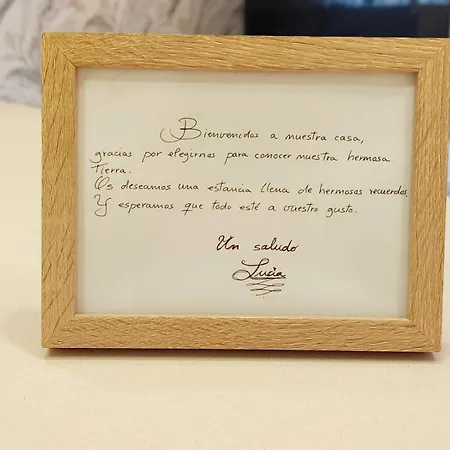 Bienvenidos a nuestra casa,
gracias por elegirnos para conocer nuestra hermosa
tierra.
Os deseamos una estancia llena de hermosos recuerdos.
Y esperamos que todo esté a vuestro gusto.
Un saludo
Lucia